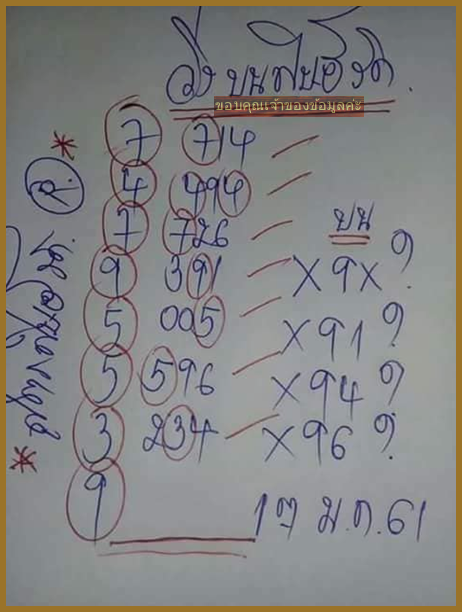 วิ่งบน
ขอบคุณเจ้าของข้อมูลค่ะ
7 714
4 494
7 726
9 391
5 005
5 596
3 234
9
บน
X9X?
X91?
X94?
X96?
17 ม.ค. 61